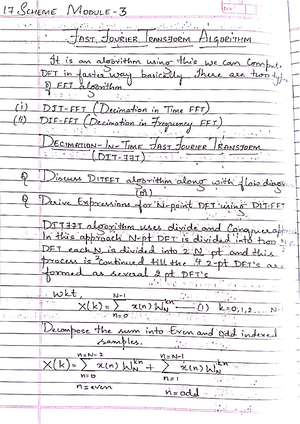 17 SCHEME MODULE-3
FAST FOURIER TRANSFORM ALGORITHM
It is an algorithm using this we can comput.
DFT in faster way basically there are two ty.
of FFT algorithm
(i) DIT-FFT (Decimation in Time FFT)
(ii) DIF-FFT (Decimation in Frequency FFT)
DECIMATION-IN-TIME FAST FOURIER TRANSFORM
(DIT-FFT)
Q Discuss DITFFT algorithm along with flow diagr
(or)
Q Derive Expressions for N-point DFT using DIT-FFT
DITFFT algorithm uses divide and
In this approach N-pt DFT is divided into two N
DFT each N is divided into 2 N pt and this
process is 2 continued till the 4 2-pt DFT's are
formed as several 2 pt DFT's
wkt,
X(k) = N-1 Σ n=0 x(n) W_N^kn —(1) k=0,1,2... N-
Decompose the sum into Even and Odd indexed
samples.
n=N-2 n=N-1
X(k) = Σ x(n) W_N^kn + Σ x(n) W_N^kn
n=0 n=1
n=even n=odd